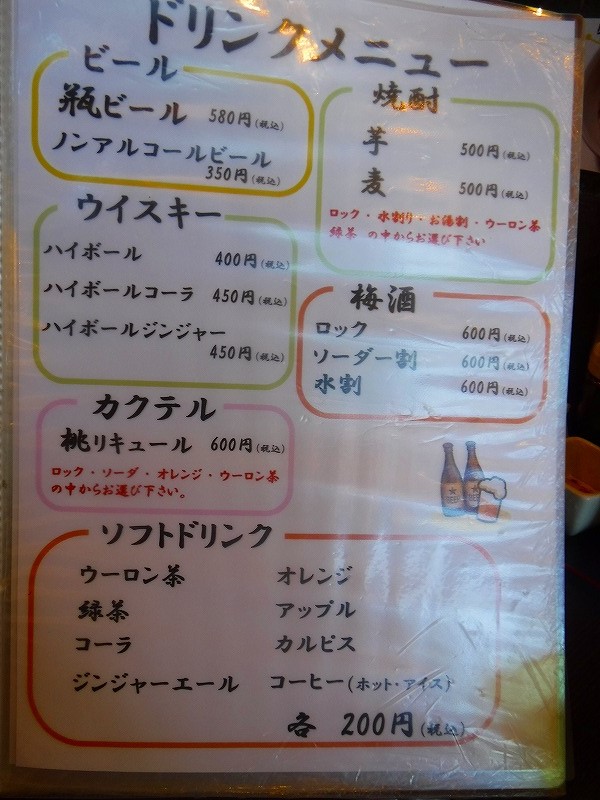 ドリンクメニュー
ビール
瓶ビール 580円(税込)
ノンアルコールビール
350円(税込)
ウイスキー
ハイボール 400円(税込)
ハイボールコーラ 450円(税込)
ハイボールジンジャー
450円(税込)
カクテル
桃リキュール 600円(税込)
ロック・ソーダ・オレンジ・ウーロン茶
の中からお選び下さい。
焼酎
芋 500円(税込)
麦 500円(税込)
ロック・水割り・お湯割・ウーロン茶
緑茶 の中からお選び下さい
梅酒
ロック 600円(税込)
ソーダー割 600円(税込)
水割 600円(税込)
ソフトドリンク
ウーロン茶 オレンジ
緑茶 アップル
コーラ カルピス
ジンジャーエール コーヒー(ホット・アイス)
各 200円(税込)